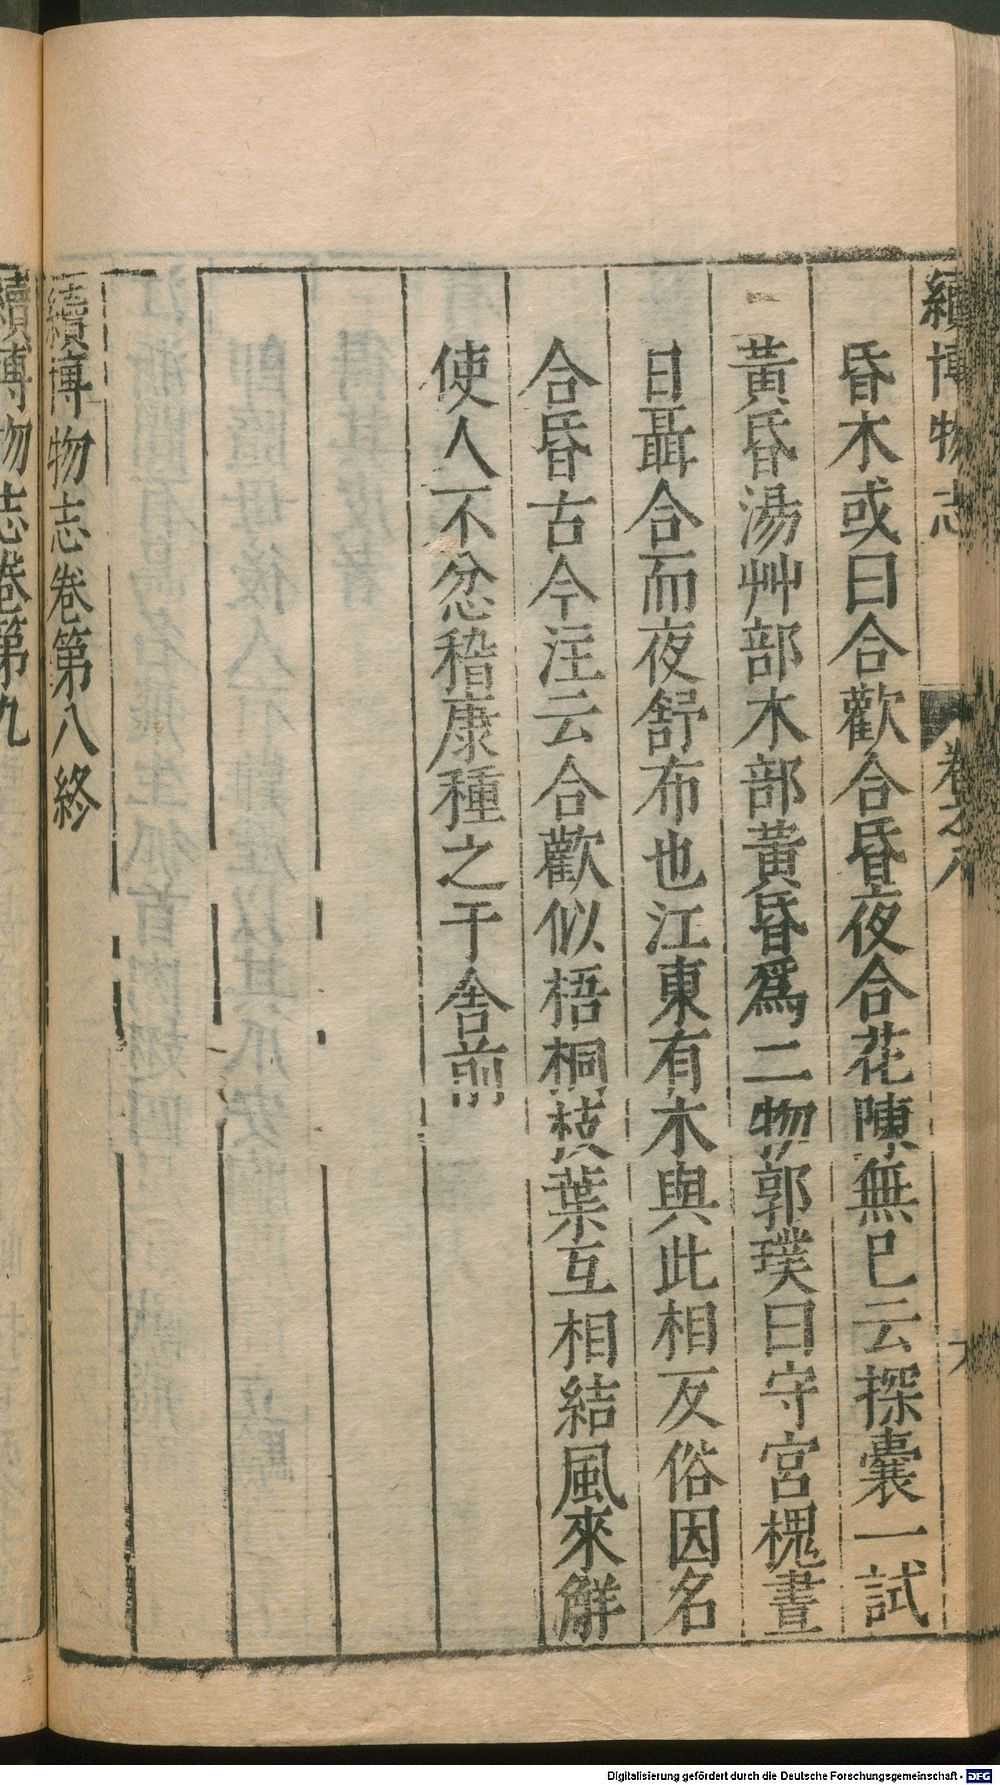 續博物志 卷之八
昏木或曰合歡合昏夜合花陳無已云探囊一試
黃昏湯艸部木部黃昏爲二物郭璞曰守宮槐晝
日聶合而夜舒布也江東有木與此相反俗因名
合昏古今注云合歡似梧桐枝葉互相結風來解
使人不忿稽康種之于舍前
續博物志卷第八終
續博物志卷第九
Digitalisierung gefördert durch die Deutsche Forschungsgemeinschaft - DFG